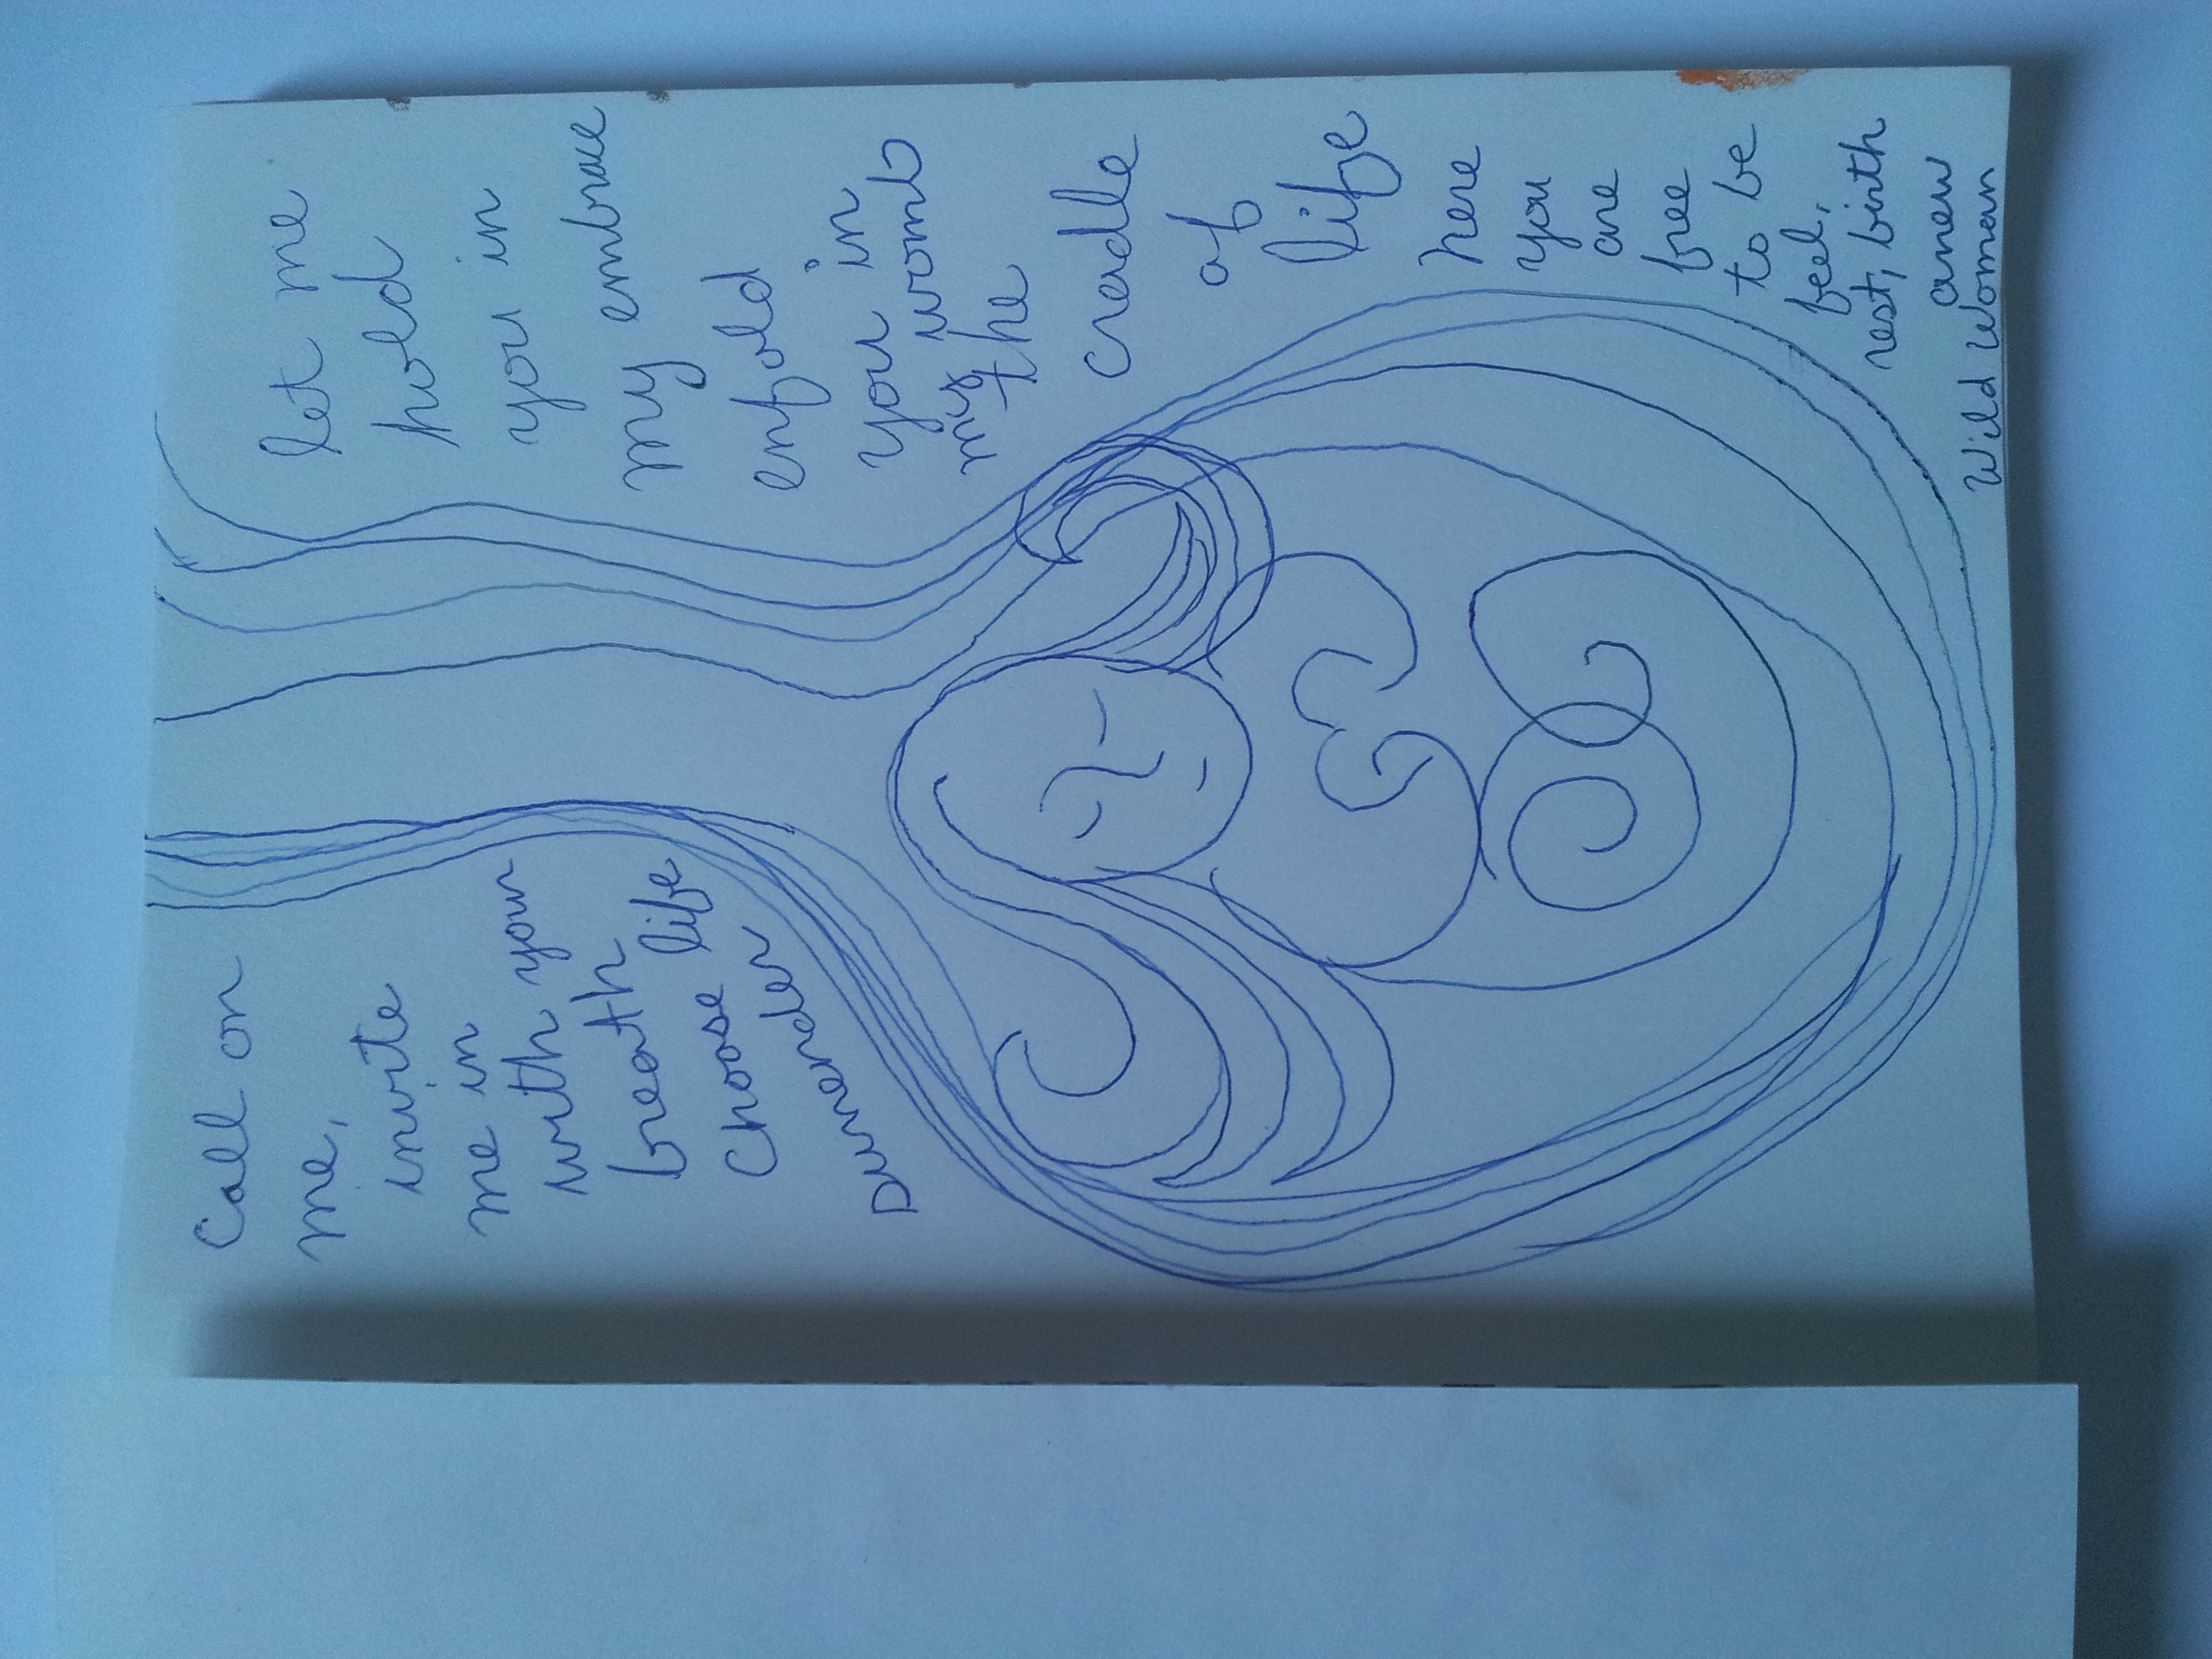 Call on
me,
invite
me in
with your
breath
choose life
surrender
let me
hold
you in
my embrace
enfold
you in
my womb
the
cradle
of
life
here
you
are
free
to be
feel,
rest, birth
anew
Wild Woman